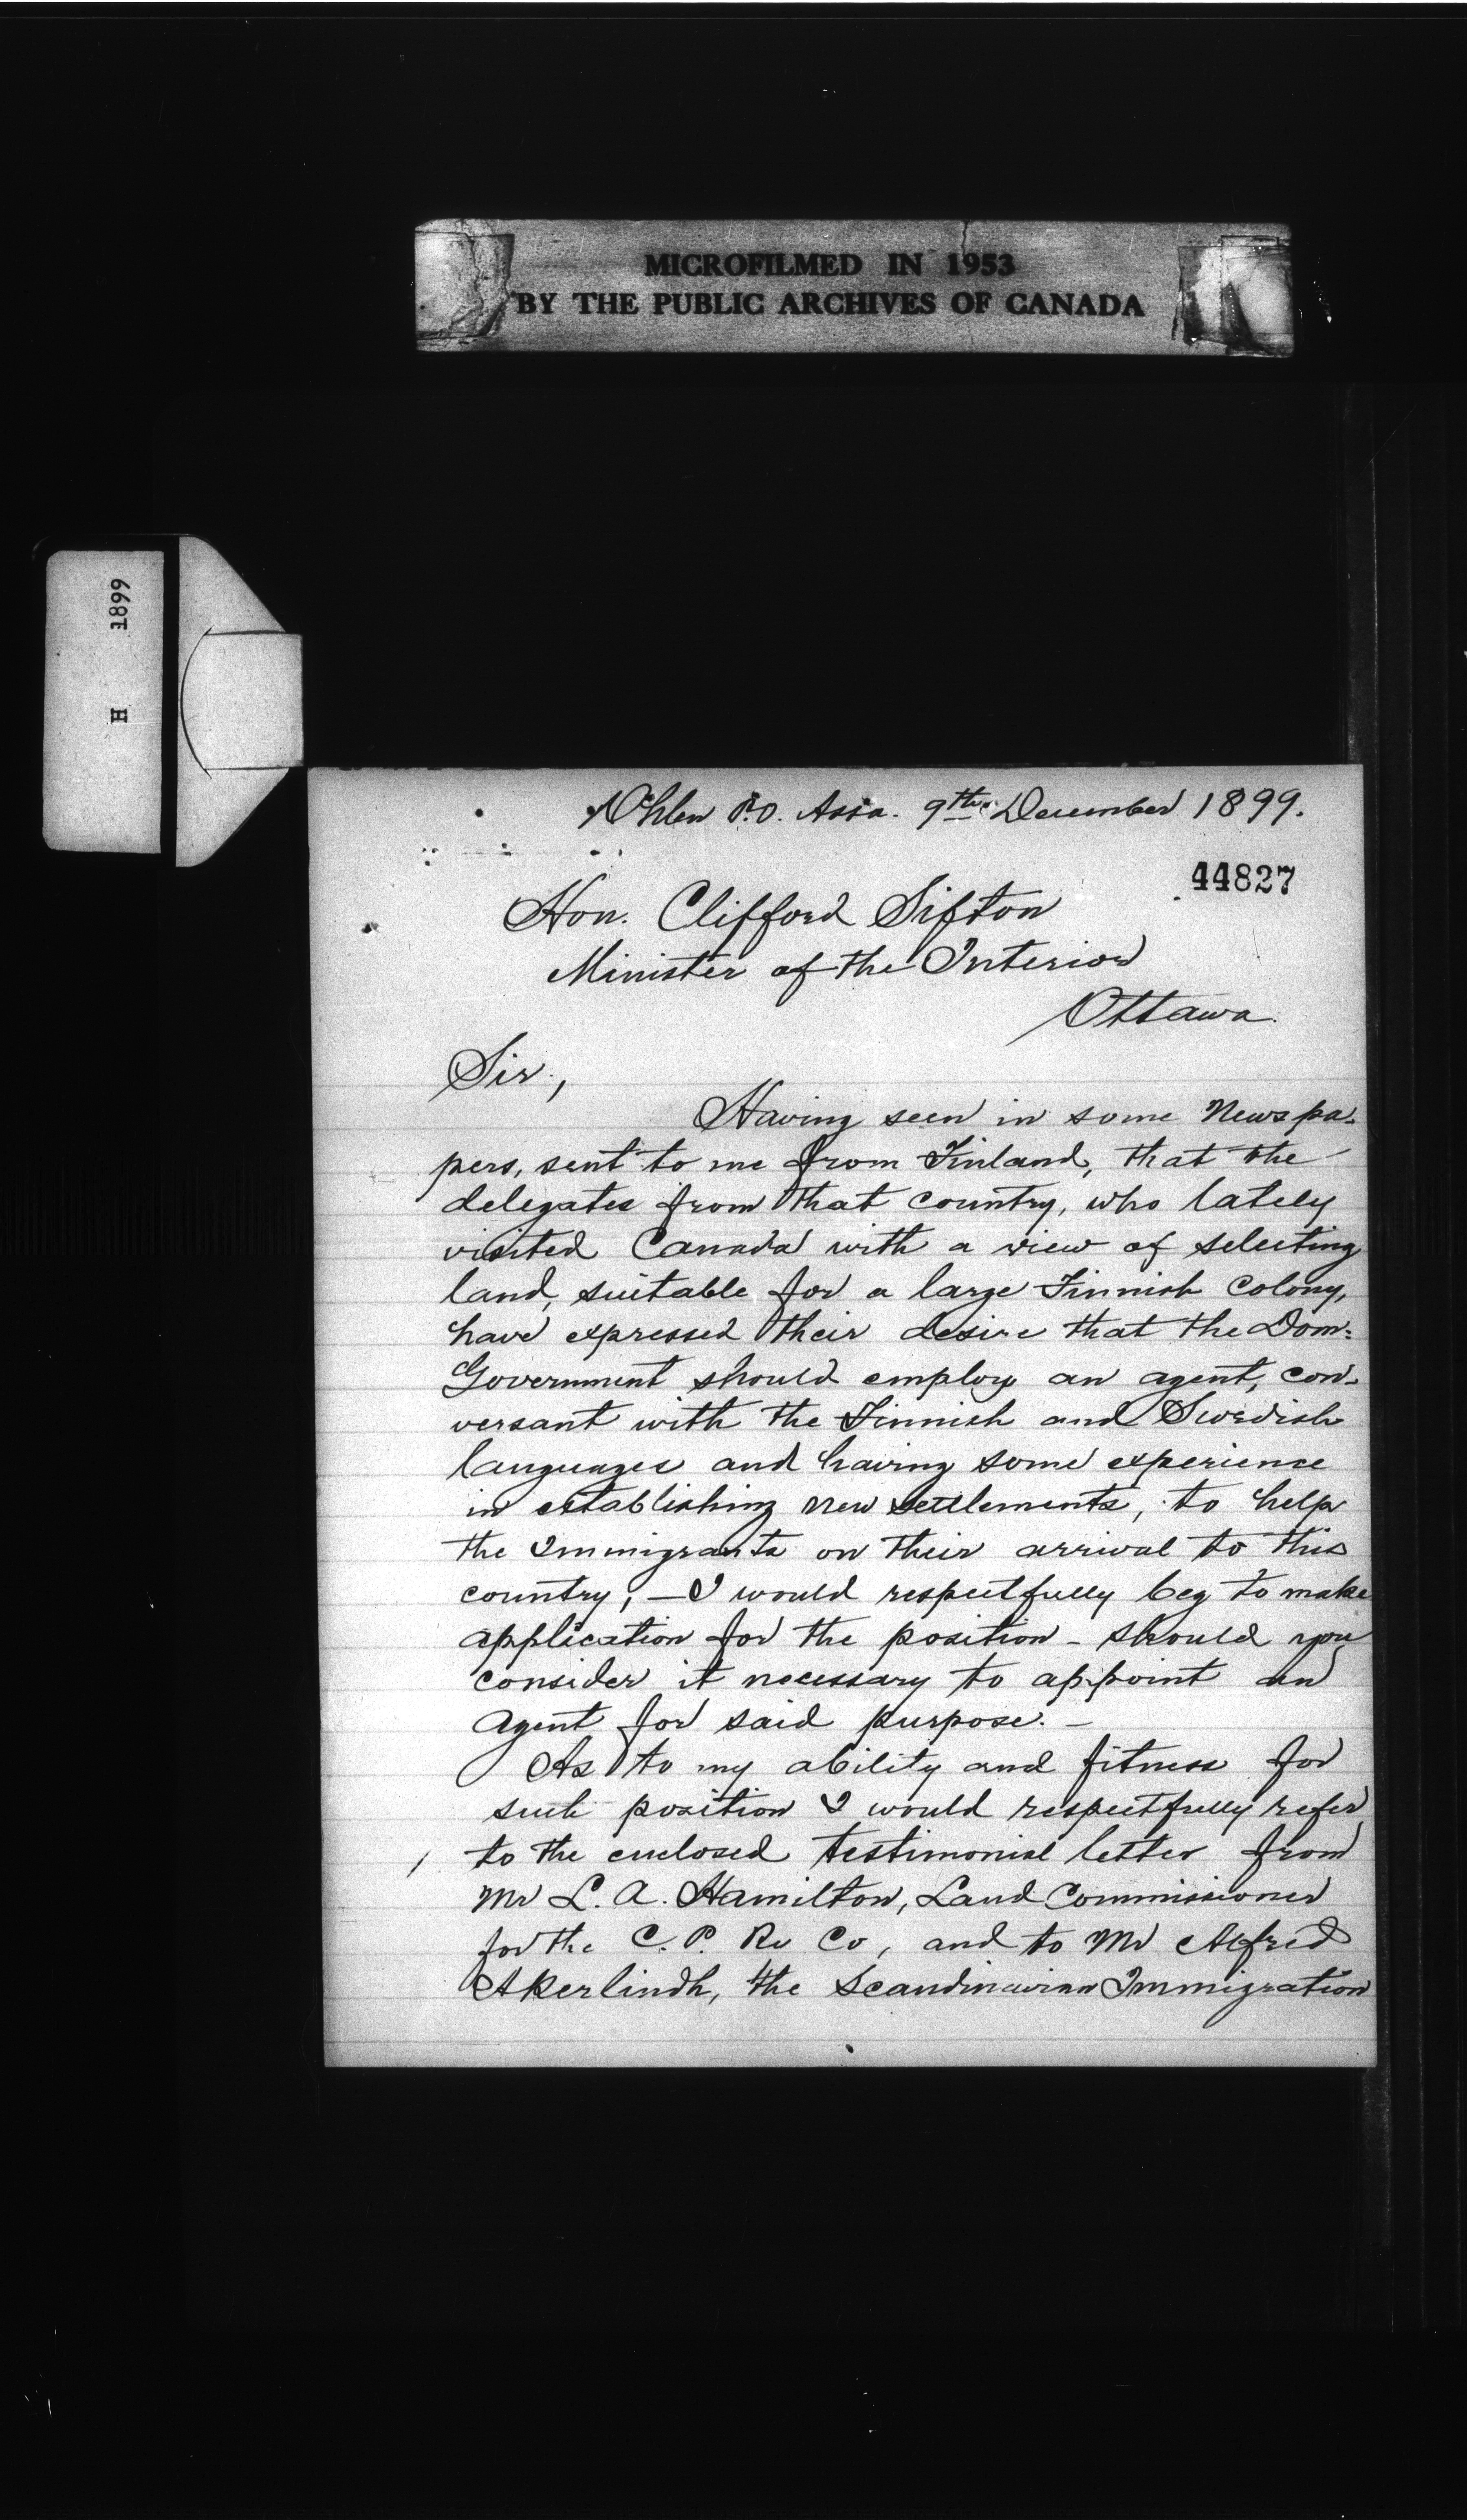 MICROFILMED IN 1953
BY THE PUBLIC ARCHIVES OF CANADA
H 1899
Ohlen P.O. Assa. 9th December 1899.
44827
Hon. Clifford Sifton
Minister of the Interior
Ottawa.
Sir,
Having seen in some Newspa-
pers, sent to me from Finland, that the
delegates from that country, who lately
visited Canada with a view of selecting
land, suitable for a large Finnish Colony,
have expressed their desire that the Dom:
Government should employ an agent, con-
versant with the Finnish and Swedish
languages and having some experience
in establishing new settlements, to help
the Immigrants on their arrival to this
country, — I would respectfully beg to make
application for the position - should you
consider it necessary to appoint an
Agent for said purpose. —
As to my ability and fitness for
such position I would respectfully refer
/ to the enclosed testimonial letter from
Mr L. A. Hamilton, Land Commissioner
for the C. P. Ry Co, and to Mr Alfred
Akerlindh, the Scandinavian Immigration